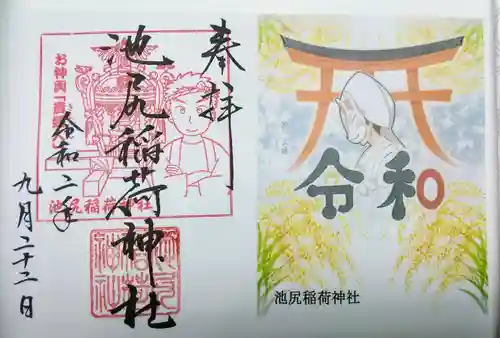 奉拝
池尻稲荷神社
令和二年
九月二十二日
お神輿一基
池尻稲荷神社
令和
池尻稲荷神社